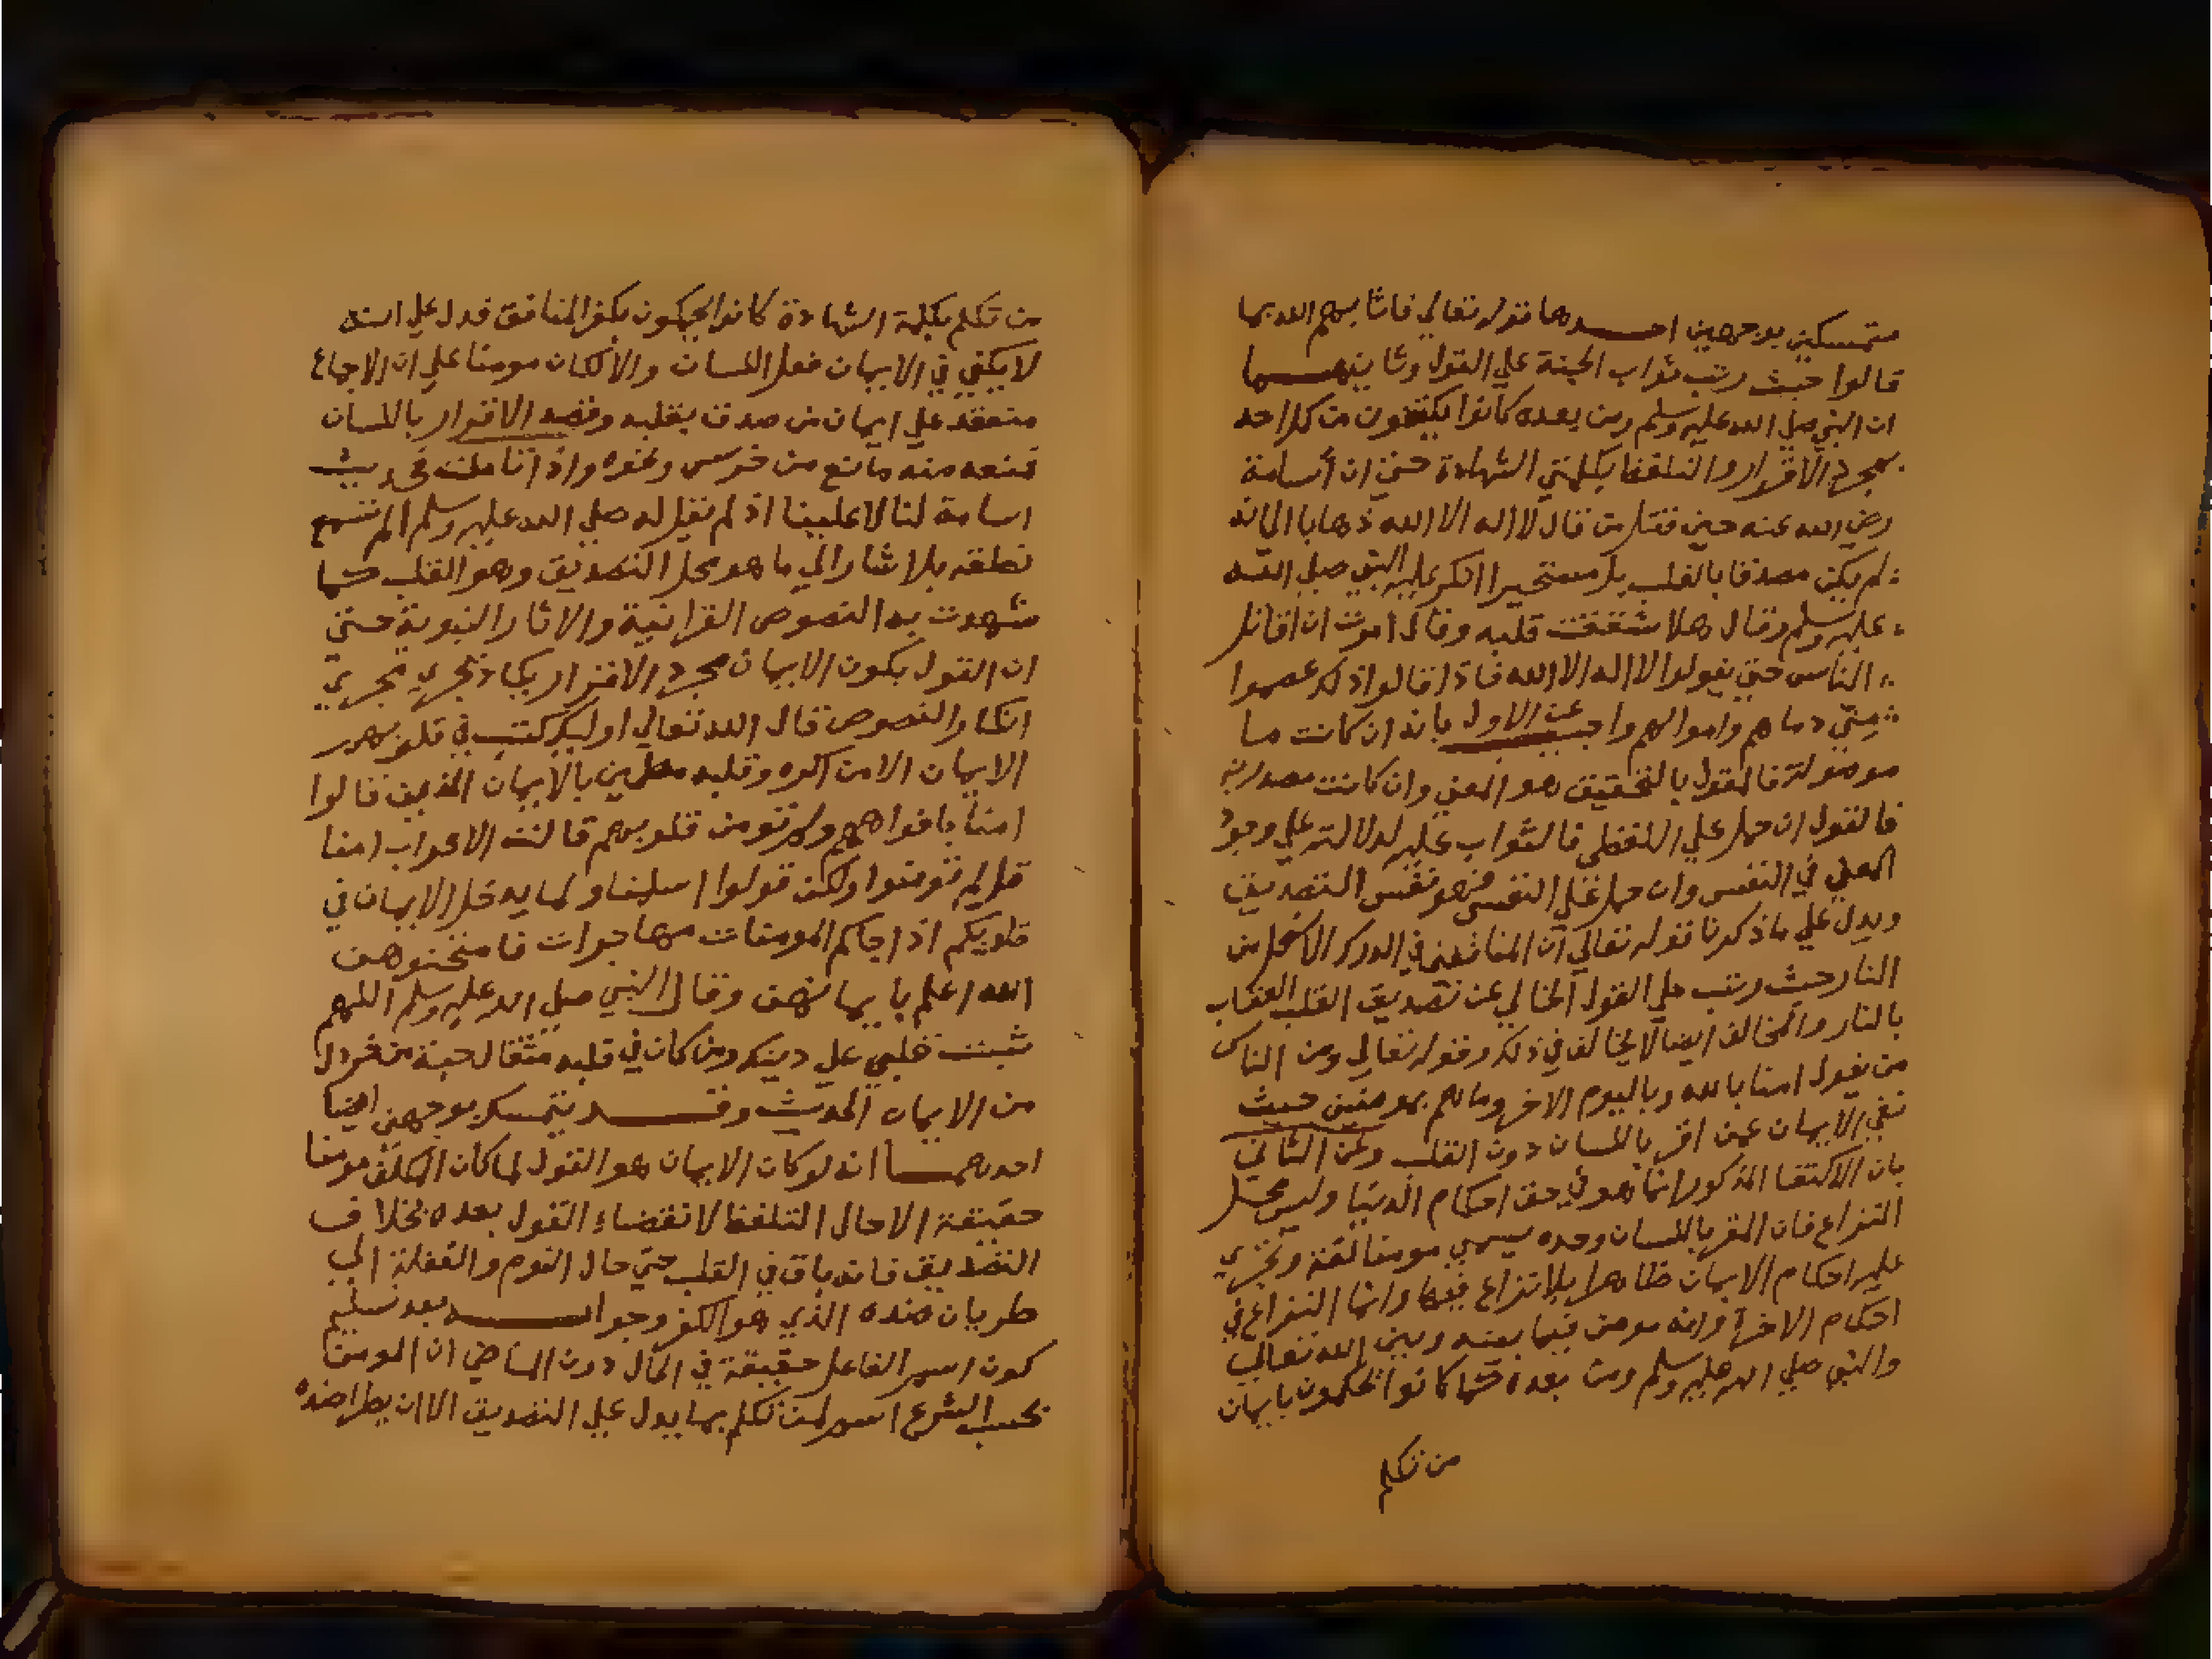 متمسكين بوجهين احدها قوله تعالي فاثابهم الله بما
قالوا حيث رتب ثواب الجنة علي القول وثانيهما
ان النبي صلي الله عليه وسلم ومن بعده كانوا يكتفون من كل احد
بمجرد الاقرار والتلفظ بكلمتي الشهادة حتي ان أسامة
رضي الله عنه حين قتل من قال لا اله الا الله ذهابا الي انه
لم يكن مصدقا بالقلب بل مستجيرا انكر عليه النبي صلي الله
عليه وسلم وقال هلا شققت قلبه وقال امرت ان اقاتل
الناس حتي يقولوا لا اله الا الله فاذا قالوا ذلك عصموا
مني دماهم واموالهم واجيب عن الاول بانه ان كانت ما
موصولة فالمقول بالتحقيق هو المعني وان كانت مصدرية
فالقول ان حمل علي اللفظي فالثواب عليه لدلالته علي وجود
المعني في النفس وان حمل علي النفسي فهو نفس التصديق
ويدل علي ما ذكرنا قوله تعالي ان المنافقين في الدرك الاسفل من
النار حيث رتب علي القول الخالي عن تصديق القلب العقاب
بالنار والمخالف ايضا لا يخالف في ذلك وقوله تعالي ومن الناس
من يقول امنا بالله وباليوم الاخر وما هم بمومنين حيث
نفي الايمان عمن اقر باللسان دون القلب وعن الثاني
بان الاكتفا المذكور انما هو في حق احكام الدنيا وليس محل
النزاع فان المقر باللسان وحده يسمي مومنا لغة وتجري
عليه احكام الايمان ظاهرا بلا نزاع فيها وانما النزاع في
احكام الاخرة وانه مومن فيما بينه وبين الله تعالي
والنبي صلي الله عليه وسلم ومن بعده كما كانوا يحكمون بايمان
من تكلم
من تكلم بكلمة الشهادة كانوا يحكمون بكفر المنافق فدل علي انه
لا يكفي في الايمان فعل اللسان والا لكان مومنا علي ان الاجماع
منعقد علي ايمان من صدق بقلبه وقصد الاقرار باللسان
فمنعه منه مانع من خرس ونحوه واذا تاملت فحديث
اسامة لنا لا علينا اذ لم يقل له صلي الله عليه وسلم الم تسمع
نطقه بل اشار الي ما هو محل التصديق وهو القلب كما
شهدت به النصوص القرانية والاثار النبوية حتي
ان القول بكون الايمان مجرد الاقرار يكاد يجري مجري
انكار النصوص قال الله تعالي اوليك كتب في قلوبهم
الايمان الا من اكره وقلبه مطمين بالايمان الذين قالوا
امنا بافواههم ولم تومن قلوبهم قالت الاعراب امنا
قل لم تومنوا ولكن قولوا اسلمنا ولما يدخل الايمان في
قلوبكم اذا جاكم المومنات مهاجرات فامتحنوهن
الله اعلم بايمانهن وقال النبي صلي الله عليه وسلم اللهم
ثبت قلبي علي دينك ومن كان في قلبه مثقال حبة من خردل
من الايمان الحديث وقد يتمسك بوجهين ايضا
احدهما انه لو كان الايمان هو القول لما كان المكلف مومنا
حقيقة الا حال التلفظ لانقضاء القول بعده بخلاف
التصديق فانه باق في القلب حتي حال النوم والغفلة الي
طريان ضده الذي هو الكفر وجوابه بعد تسليم
كون اسم الفاعل حقيقة في الحال دون الماضي ان المومن
بحسب الشرع اسم لمن تكلم بما يدل علي التصديق الا ان يطرا ضده